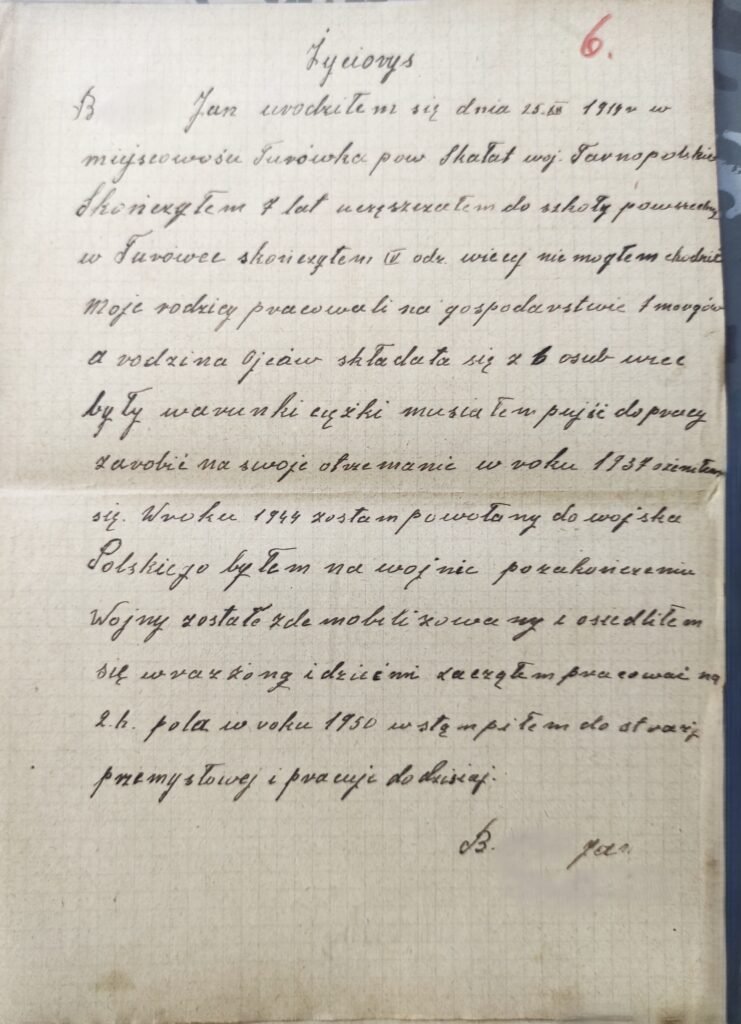 6.
Życiorys
B Jan urodziłem się dnia 25.III 1914 r w
miejscowośu Turówka pow Skałat woj. Tarnopolskie
Skończyłem 7 lat uczęszczałem do szkoły powszechny
w Turówce skończyłem IV odz. wiecy nie mogłem chodzić
Moje rodzicy pracowali na gospodarstwie 1 morgów
a rodzina Ojców składała się z 6 osub wiec
były warunki ciężki musiałem pujść do pracy
zarobić na swoje otrzemanie w roku 1937 ożeniłem
się. W roku 1944 zostam powołany do wojska
Polskiejo byłem na wojnie po zakończeniu
Wojny zostałe zdemobilizowany i osiedliłem
się wraz żoną i dziećmi zaczątem pracować na
2.h. pola w roku 1950 wstąmpiłem do straży
przemysłowej i pracuje do dzisiaj.
B. Jan